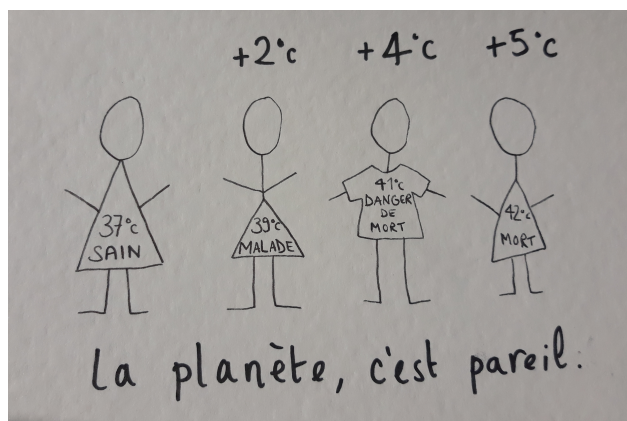 +2°c +4°c +5°c
37°c
SAIN
39°c
MALADE
41°c
DANGER
DE
MORT
42°c
MORT
La planète, c'est pareil.